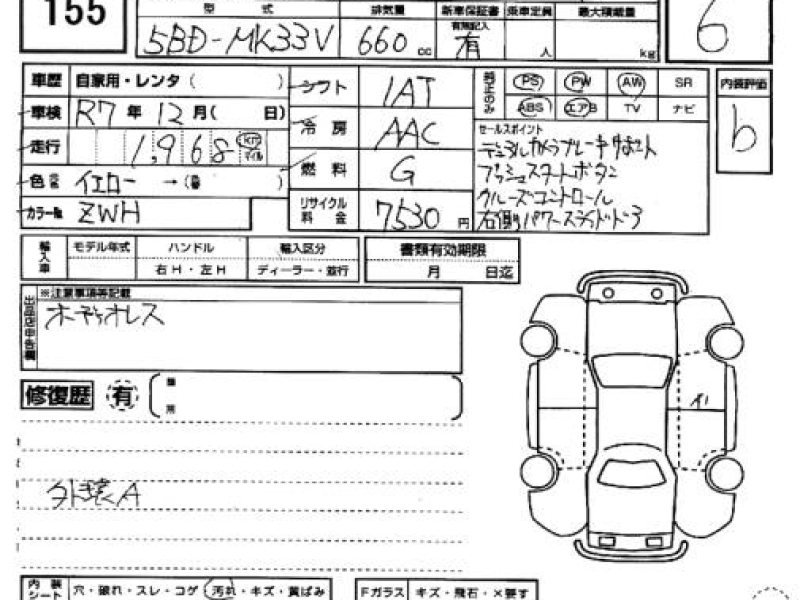 155
型 式 排気量 新車保証書 乗車定員 最大積載量
5BD-MK33V 660 cc 有無記入 有 人 kg
6
車歴 自家用・レンタ( )
シフト IAT
純正のみ PS PW AW SR
ABS エアB TV ナビ
内装評価 b
車検 R7 年 12 月( 日)
冷房 AAC
走行 1,968 km マイル
セールスポイント
デュアルカメラブレーキサポート
プッシュスタートボタン
クルーズコントロール
右側パワースライドドア
色 イエロー →( )
燃料 G
カラーNo. ZWH
リサイクル料金 7530 円
輸入車 モデル年式 ハンドル 輸入区分 書類有効期限
右H・左H ディーラー・並行 月 日迄
出品店申告欄
※注意事項等記載
オーディオレス
修復歴 有
外装A
内装シート 穴・破れ・スレ・コゲ・汚れ・キズ・黄ばみ
Fガラス キズ・飛石・×要す